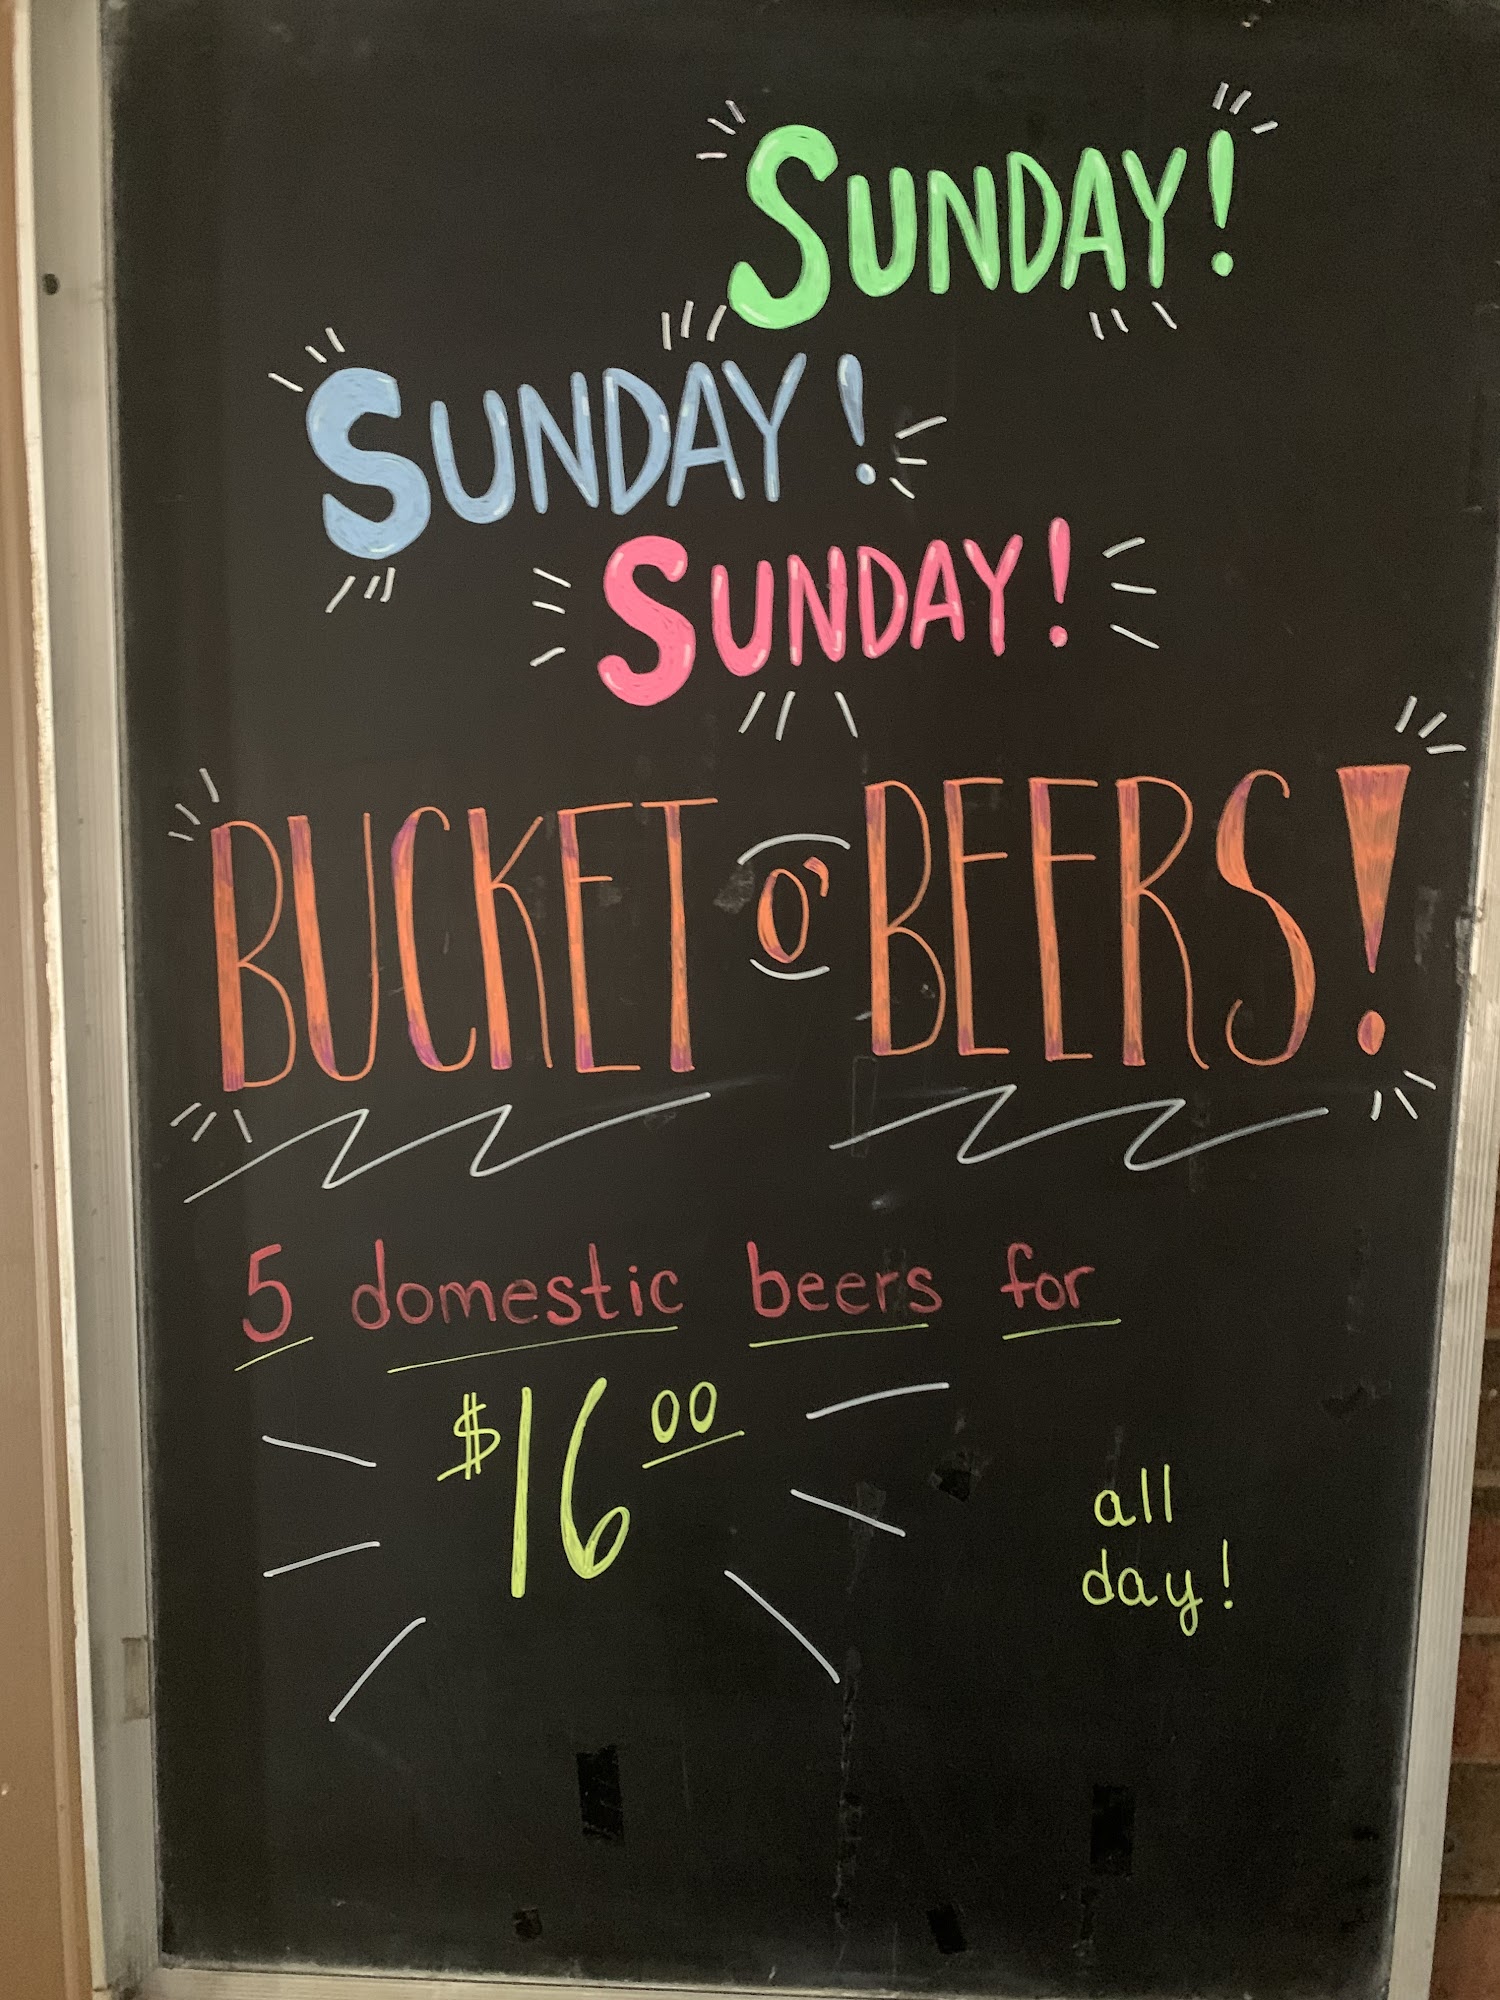 SUNDAY!
SUNDAY!
SUNDAY!
BUCKET O' BEERS!
5 domestic beers for
$16 00
all
day!